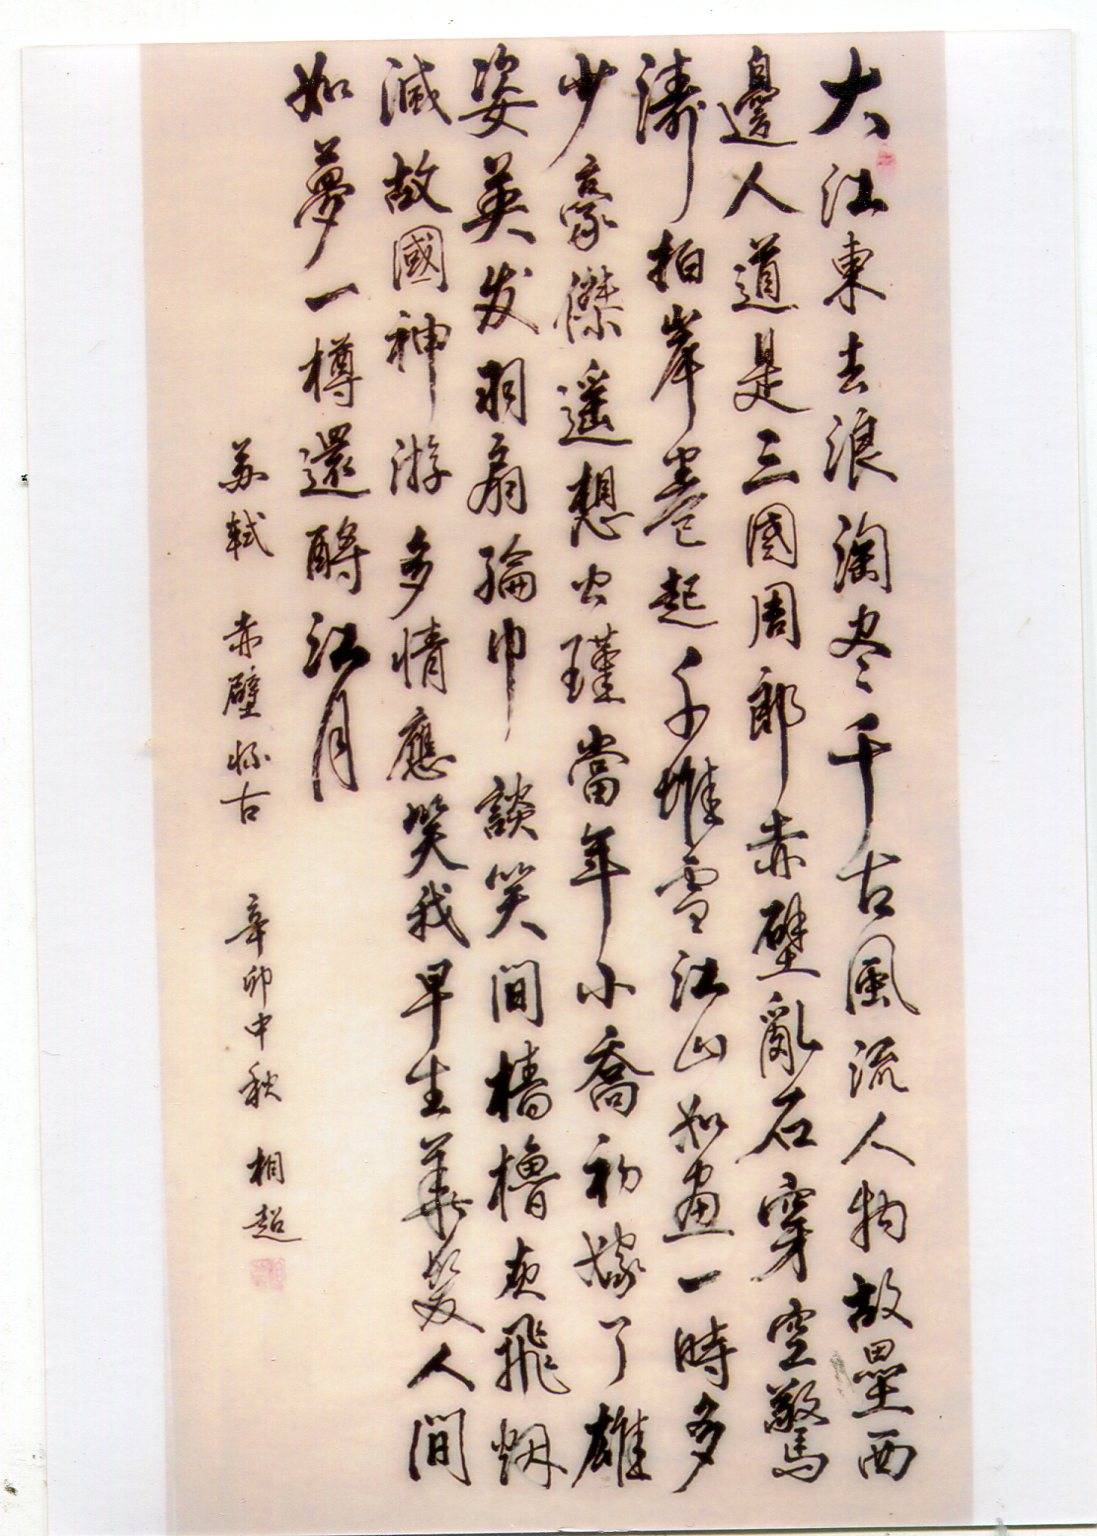 大江東去浪淘尽千古風流人物故壘西
邊人道是三國周郎赤壁亂石穿空驚
濤拍岸卷起千堆雪江山如畫一時多
少豪傑遥想公瑾當年小喬初嫁了雄
姿英发羽扇綸巾談笑間檣櫓灰飛烟
滅故國神游多情應笑我早生華髮人間
如夢一樽還酹江月
苏軾 赤壁怀古 辛卯中秋 相超